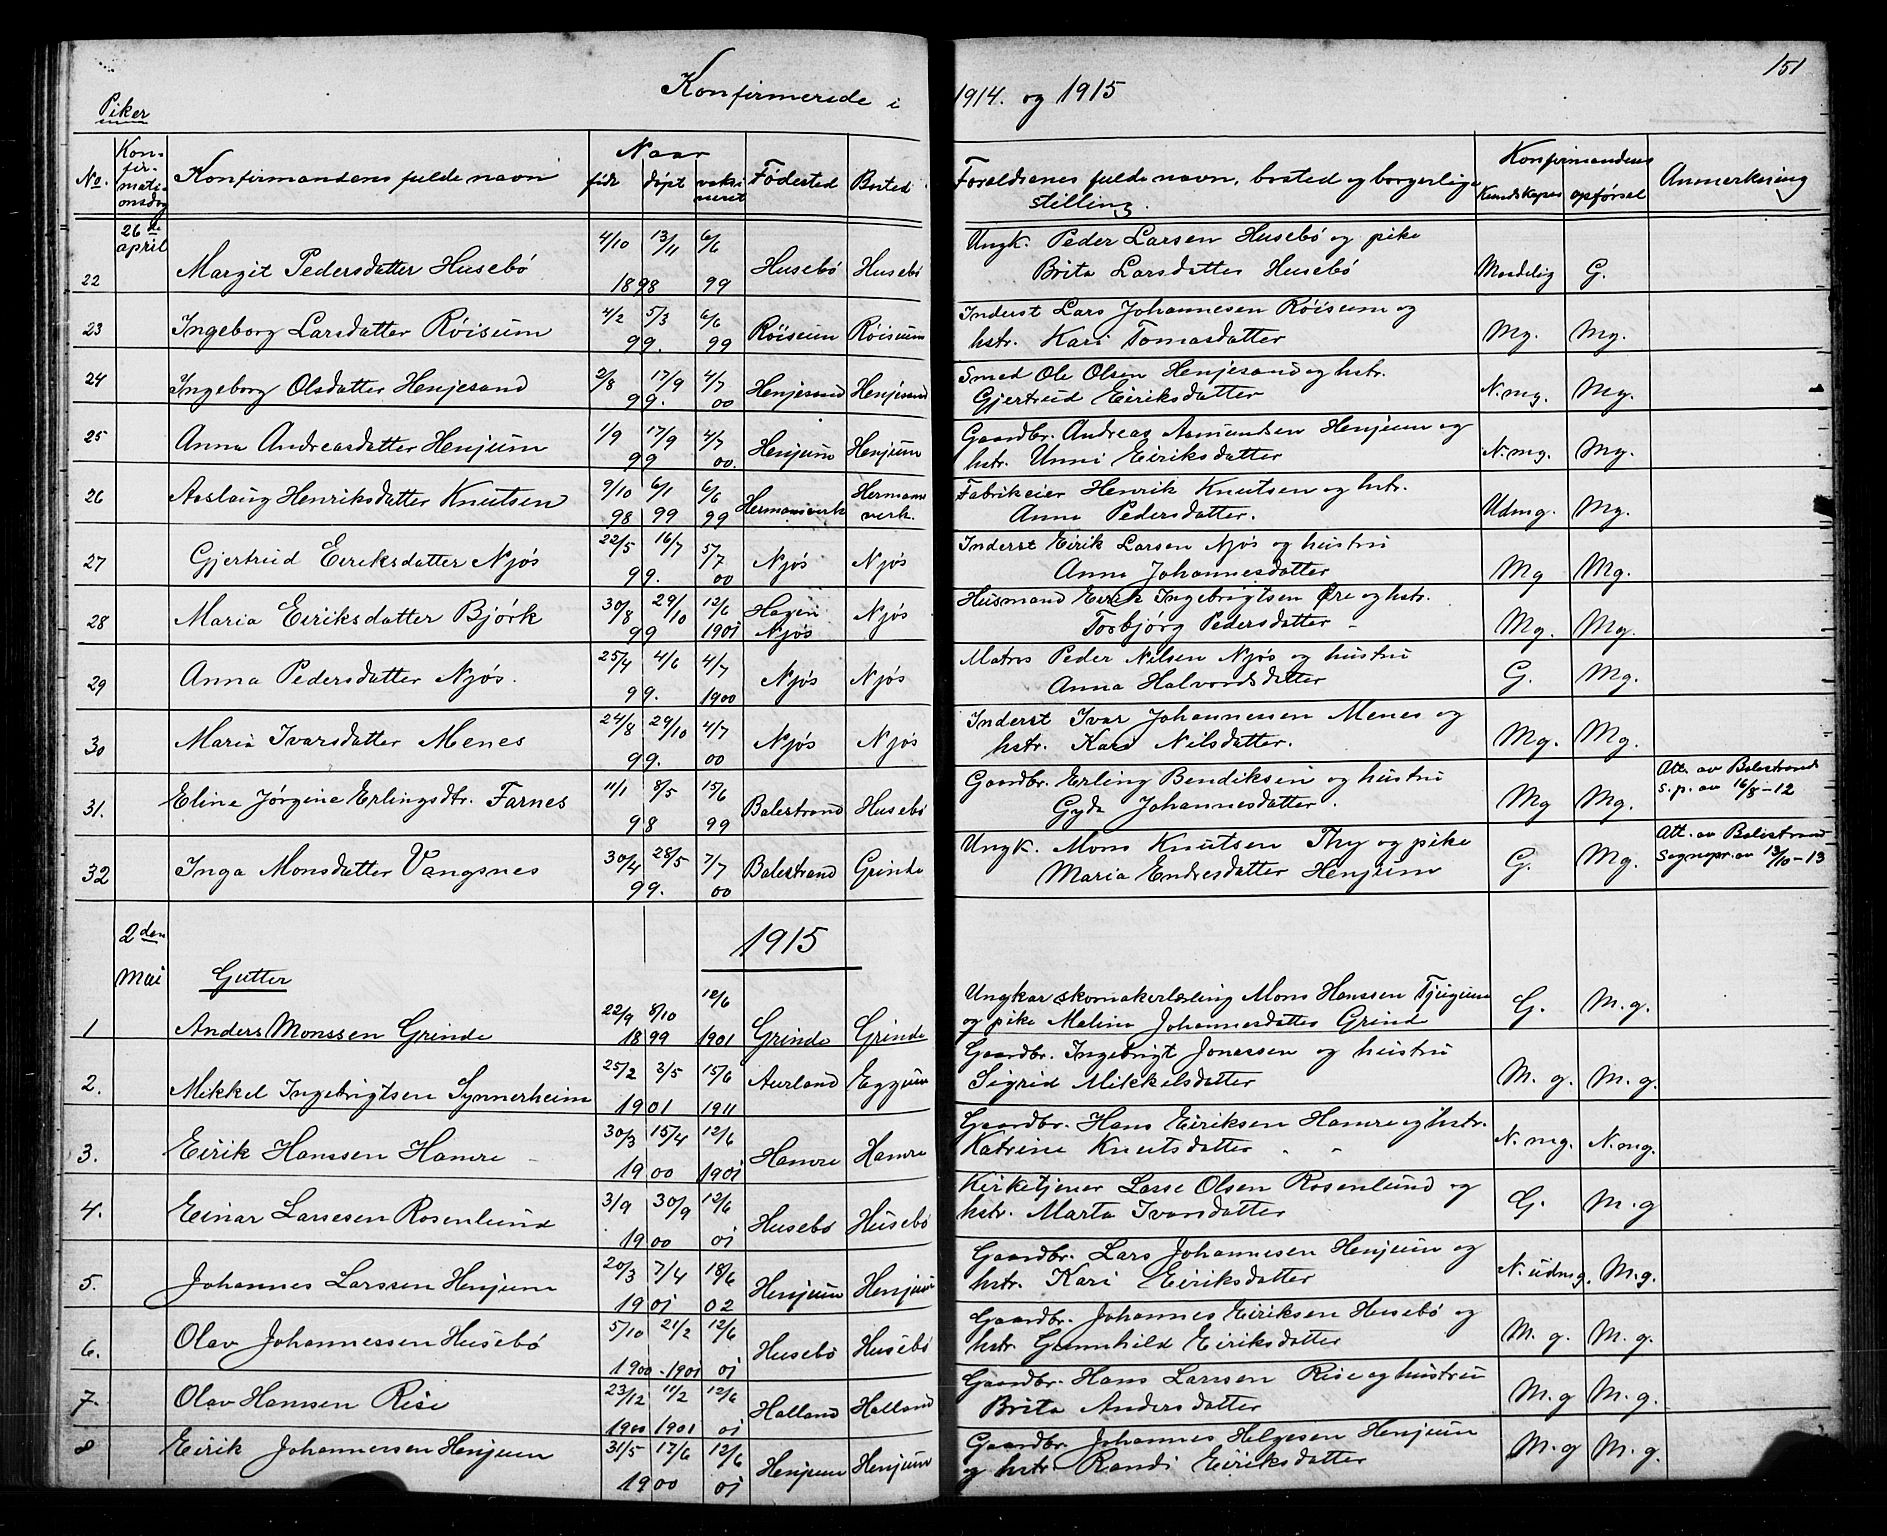 151
Konfirmerede i 1914. og 1915
Piker
No. Konfirmationsdag Konfirmandens fulde navn Naar født døpt vaksineret Fødested Bosted Foreldrenes fulde navn, bosted og borgerlige stilling. Konfirmandens Kundskaper opførsel Anmerkning
26de april
22 Margit Pedersdatter Husebö 4/10 13/11 6/6 1898 99 Husebö Husebö Ungk. Peder Larsen Husebö og pike
Brita Larsdatter Husebö Maadelig G.
23 Ingeborg Larsdatter Röisum 4/2 5/3 6/6 99. 99 Röisum Röisum Inderst Lars Johannesen Röisum og
hstr. Kari Tomasdatter Mg. Mg.
24 Ingeborg Olsdatter Henjesand 2/8 17/9 4/7 99. 00 Henjesand Henjesand Smed Ole Olsen Henjesand og hstr.
Gjertrud Eiriksdatter N. mg. Mg.
25 Anna Andreasdatter Henjum 1/9 17/9 4/7 99 00. Henjum Henjum Gaardbr. Andreas Asmundsen Henjum og
hstr. Unni Eiriksdatter N. mg. Mg.
26 Aslaug Henriksdatter Knutsen 9/10 6/1 6/6 98 99 99 Hermansverk Hermansverk. Fabrikeier Henrik Knutsen og hstr.
Anna Pedersdatter. Udmg. Mg.
27 Gjertrud Eiriksdatter Njös 22/5 16/7 5/7 99. 00 Njös Njös Inderst Eirik Larsen Njös og hustru
Anna Johannesdatter Mg Mg.
28 Maria Eiriksdatter Björk 30/8 29/10 12/6 99 1901 Hagen Njös Njös Husmand Eirik Ingebrigtsen Øre og hstr.
Torbjörg Pedersdatter Mg. Mg.
29 Anna Pedersdatter Njös. 25/4 4/6 4/7 99. 1900 Njös Njös Matros Peder Nilsen Njös og hustru
Anna Halvordsdatter G. Mg.
30 Maria Ivarsdatter Menes 24/8 29/10 4/7 99. 00 Njös Njös Inderst Ivar Johannessen Menes og
hstr. Kari Nilsdatter. Mg. Mg.
31. Eline Jörgine Erlingsdtr. Farnes 11/1 8/5 15/6 98 99 Balestrand Husebö Gaardbr. Erling Bendiksen og hustru
Gyda Johannesdatter. Mg Mg. Att. av Balestrands
s. p. av 16/8-12
32 Inga Monsdatter Vangsnes 30/4 28/5 7/7 99. 00 Balestrand Grinde Ungk. Mons Knutsen Thy og pike
Maria Endresdatter Henjum G. Mg. Att. av Balestrand
Sognepr. av 13/10-13
2den Mai
1915
Gutter
1 Anders Monssen Grinde 22/9 8/10 12/6 1899 1901 Grinde Grinde Ungkar skomakerlærling Mons Hanssen Tjugum
og pike Malina Johannesdatter Grinde G. M. g.
2. Mikkel Ingebrigtsen Synnerheim 25/2 3/5 15/6 1901 1911 Aurland Eggum Gaardbr. Ingebrigt Jonassen og hustru
Sigrid Mikkelsdatter M. g. M. g.
3. Eirik Hanssen Hamre 30/3 15/4 12/6 1900 1901 Hamre Hamre Gaardbr. Hans Eiriksen Hamre og hstr.
Katrine Knutsdatter N. mg. N. mg.
4. Einar Larsesen Rosenlund 3/9 30/9 12/6 1900 01 Husebö Husebö Kirketjener Larse Olsen Rosenlund og
hstr. Marta Ivarsdatter G. M. g
5. Johannes Larssen Henjum 20/3 7/4 18/6 1901 02 Henjum Henjum Gaardbr. Lars Johannesen Henjum og
hstr. Kari Eiriksdatter N. udmg. M. g.
6. Olav Johannessen Husebö 5/10 21/2 12/6 1900-1901 01 Husebö Husebö Gaardbr. Johannes Eiriksen Husebö og
hstr. Gunnhild Eiriksdatter M. g. M. g.
7. Olav Hanssen Risi 23/12 11/2 12/6 1900 1901 01 Halland Halland Gaardbr. Hans Larssen Rise og hustru
Brita Andersdatter M. g M. g.
8 Eirik Johannessen Henjum 31/5 17/6 12/6 1900 01 Henjum Henjum Gaardbr. Johannes Helgesen Henjum
og hstr. Randi Eiriksdatter M. g M. g.